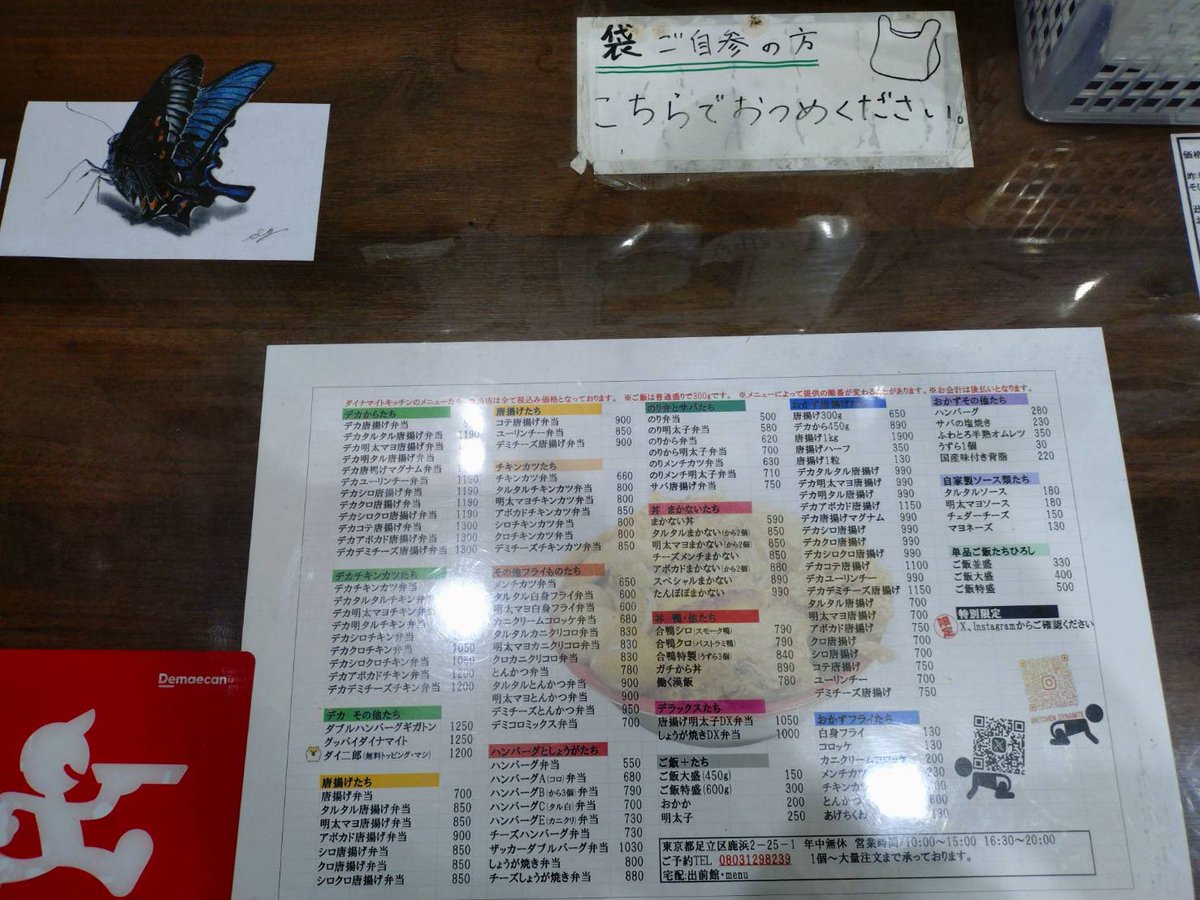 袋 ご自参の方
こちらでおつめください。
ダイナマイトキッチンのメニューたち
店は全て税込み価格となっております。 ※ご飯は普通盛りで300gです。 ※メニューによって提供の順番が変わることがあります。 ※お会計は後払いとなります。
デカからたち
デカ唐揚げ弁当
デカタルタル唐揚げ弁当 1190
デカ明太マヨ唐揚げ弁当
デカ明タル唐揚げ弁当
デカ唐揚げマグナム弁当
デカユーリンチー弁当 1190
デカシロ唐揚げ弁当 1190
デカクロ唐揚げ弁当 1190
デカシロクロ唐揚げ弁当 1190
デカコテ唐揚げ弁当 1300
デカアボカド唐揚げ弁当 1300
デカデミチーズ唐揚げ弁当 1300
デカチキンカツたち
デカチキンカツ弁当
デカタルタルチキン弁当
デカ明太マヨチキン弁当
デカ明タルチキン弁当
デカシロチキン弁当
デカクロチキン弁当 1050
デカシロクロチキン弁当 1050
デカアボカドチキン弁当 1200
デカデミチーズチキン弁当 1200
デカ その他たち
ダブルハンバーグギガトン 1250
グッバイダイナマイト 1250
ダイ二郎(無料トッピング・マシ) 1200
唐揚げたち
唐揚げ弁当 700
タルタル唐揚げ弁当 850
明太マヨ唐揚げ弁当 850
アボカド唐揚げ弁当 900
シロ唐揚げ弁当 850
クロ唐揚げ弁当 850
シロクロ唐揚げ弁当 850
唐揚げたち
コテ唐揚げ弁当 900
ユーリンチー弁当 850
デミチーズ唐揚げ弁当 900
チキンカツたち
チキンカツ弁当 660
タルタルチキンカツ弁当 800
明太マヨチキンカツ弁当 800
アボカドチキンカツ弁当 850
シロチキンカツ弁当 800
クロチキンカツ弁当 800
デミチーズチキンカツ弁当 850
その他フライものたち
メンチカツ弁当 650
タルタル白身フライ弁当 600
明太マヨ白身フライ弁当 600
カニクリームコロッケ弁当 680
タルタルカニクリコロ弁当 830
明太マヨカニクリコロ弁当 830
クロカニクリコロ弁当 830
とんかつ弁当 780
タルタルとんかつ弁当 900
明太マヨとんかつ弁当 900
デミチーズとんかつ弁当 950
デミコロミックス弁当 700
ハンバーグとしょうがたち
ハンバーグ弁当 550
ハンバーグA(コロ)弁当 680
ハンバーグB(から3個)弁当 790
ハンバーグC(タル白)弁当 700
ハンバーグE(カニクリ)弁当 730
チーズハンバーグ弁当 730
ザッカーダブルバーグ弁当 1030
しょうが焼き弁当 800
チーズしょうが焼き弁当 880
のり弁とサバたち
のり弁当 500
のり明太子弁当 580
のりから弁当 620
のりから明太子弁当 700
のりメンチカツ弁当 630
のりメンチ明太子弁当 710
サバ唐揚げ弁当 750
丼 まかないたち
まかない丼 590
タルタルまかない(から2個) 850
明太マヨまかない(から2個) 850
チーズメンチまかない 850
アボカドまかない(から2個) 880
スペシャルまかない 890
たんぽぽまかない 990
丼 鴨・他たち
合鴨シロ(スモーク鴨) 790
合鴨クロ(パストラミ鴨) 790
合鴨特製(うずら3個) 840
ガチから丼 890
働く漢飯 780
デラックスたち
唐揚げ明太子DX弁当 1050
しょうが焼きDX弁当 1000
ご飯+たち
ご飯大盛(450g) 150
ご飯特盛(600g) 300
おかか 200
明太子 250
おかず唐揚げ
唐揚げ300g 650
デカから450g 890
唐揚げ1kg 1900
唐揚げハーフ 350
唐揚げ1粒 130
デカタルタル唐揚げ 990
デカ明太マヨ唐揚げ 990
デカ明タル唐揚げ 990
デカアボカド唐揚げ 1150
デカ唐揚げマグナム 990
デカシロ唐揚げ 990
デカクロ唐揚げ 990
デカシロクロ唐揚げ 990
デカコテ唐揚げ 1100
デカユーリンチー 990
デカデミチーズ唐揚げ 1150
タルタル唐揚げ 700
明太マヨ唐揚げ 700
アボカド唐揚げ 750
クロ唐揚げ 700
シロ唐揚げ 700
コテ唐揚げ 750
ユーリンチー 700
デミチーズ唐揚げ 750
おかずフライたち
白身フライ 130
コロッケ
カニクリームコロッケ
メンチカツ 230
チキンカツ
とんかつ 600
あげちくわ 130
おかずその他たち
ハンバーグ 280
サバの塩焼き 230
ふわとろ半熟オムレツ 350
うずら1個 30
国産味付き背脂 220
自家製ソース類たち
タルタルソース 180
明太マヨソース 180
チェダーチーズ 150
マヨネーズ 130
単品ご飯たちひろし
ご飯並盛 330
ご飯大盛 400
ご飯特盛 500
特別限定
限定
X、Instagramからご確認ください
@KITCHEN_DYNAMITE
東京都足立区鹿浜2-25-1 年中無休 営業時間/10:00~15:00 16:30~20:00
ご予約TEL 08031298239 1個~大量注文まで承っております。
宅配:出前館・menu
Demaecan